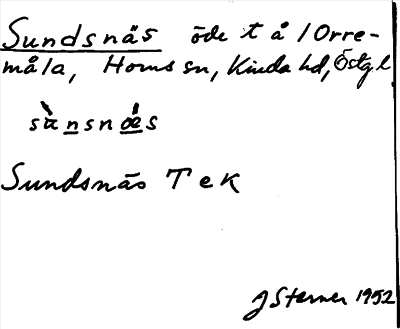 Sundsnäs öde t å 1 Orre-
måla, Horns sn, Kinda hd, Östgl
sùnsnǽs
Sundsnäs T e K
J Sterner 1952